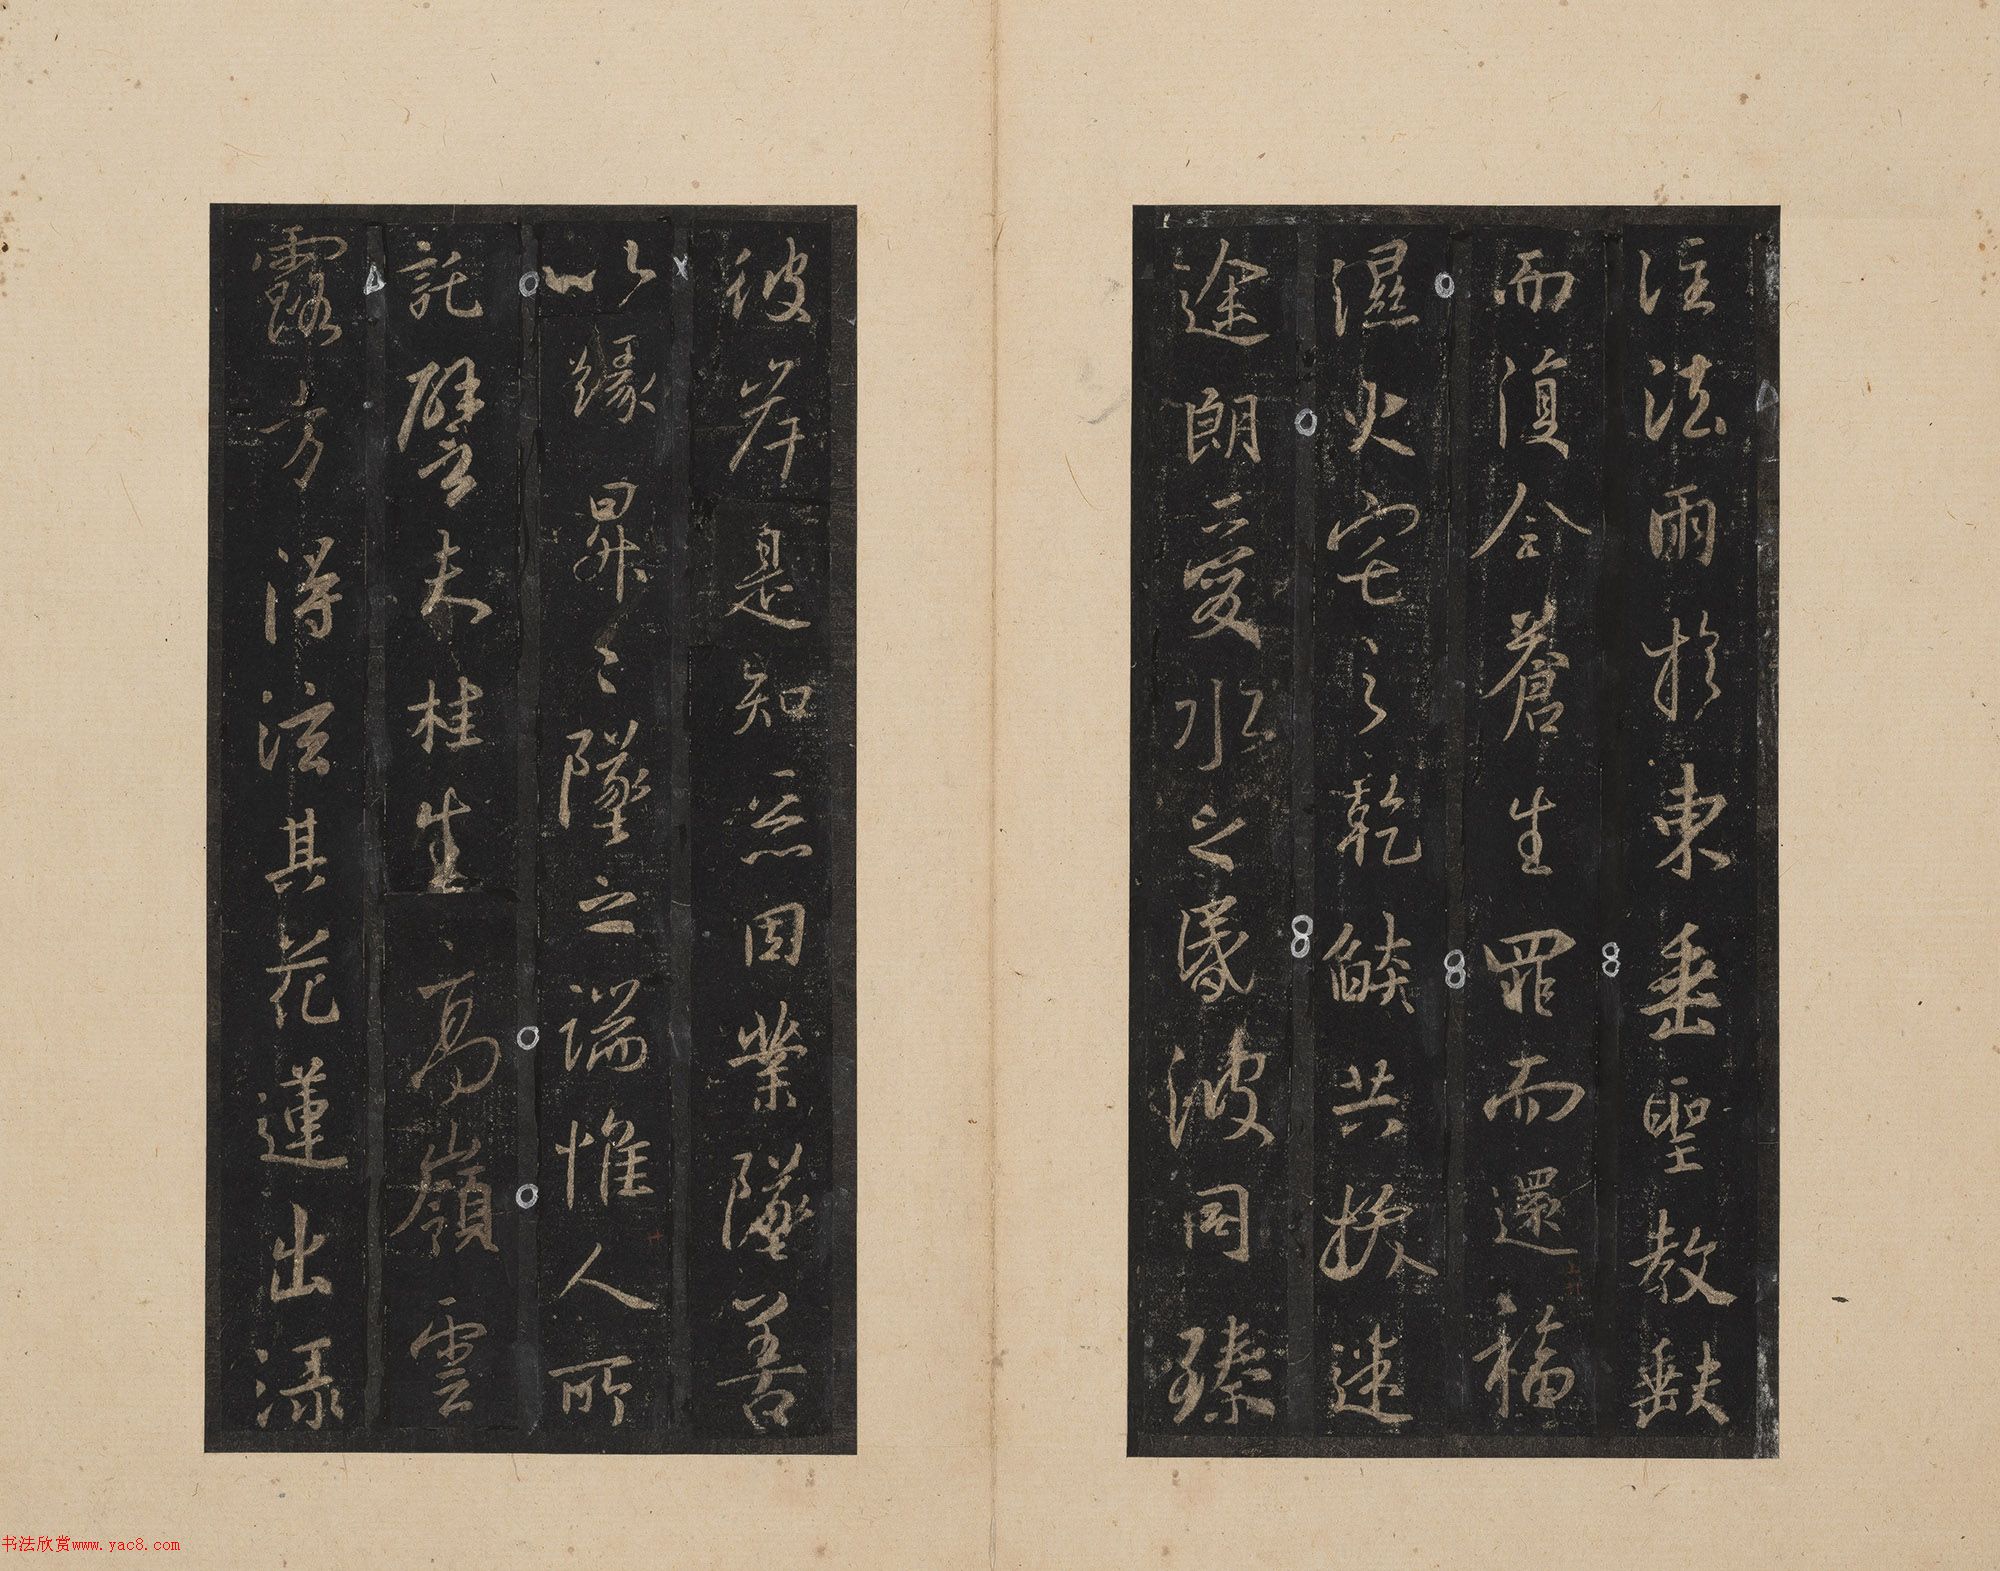 注法雨於東垂聖教缺
而復全蒼生罪而還福
濕火宅之乾焰共拔迷
途朗愛水之昏波同臻
彼岸是知惡因業墜善
以緣昇〻墜之端惟人所
託譬夫桂生高嶺雲
露方得泫其花蓮出淥
书法欣赏www.yac8.com